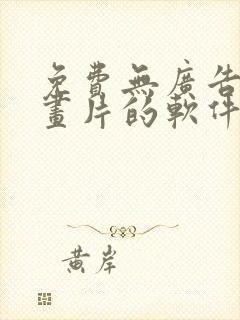 免費無廣告
畫片的軟件
黃岸